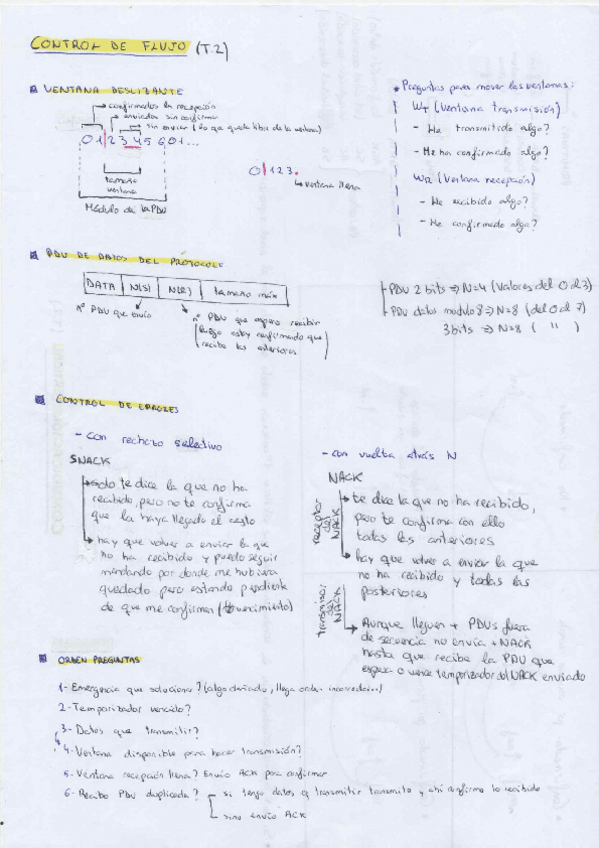 CONTROL DE FLUJO (T.2)
VENTANA DESLIZANTE
confirmados la recepción
enviados sin confirmar
sin enviar (lo que queda libre de la ventana)
0 1 2 3 4 5 6 0 1 ...
tamaño
ventana
Módulo de la PDU
0 1 2 3 .
ventana llena
* Preguntas para mover las ventanas:
WT (Ventana transmisión)
- He transmitido algo?
- Me ha confirmado algo?
WR (Ventana recepción)
- He recibido algo?
- He confirmado algo?
PDU DE DATOS DEL PROTOCOLO
DATA N(S) N(R) tamaño máx
nº PDU que envío
nº PDU que espero recibir
(luego estoy confirmando que
recibo las anteriores)
- PDU 2 bits => N=4 (Valores del 0 al 3)
- PDU datos modulo 8 => N=8 (del 0 al 7)
3 bits => N=8 ( " )
CONTROL DE ERRORES
- con rechazo selectivo
SNACK
solo te dice la que no ha
recibido, pero no te confirma
que la haya llegado el resto
hay que volver a enviar la que
no ha recibido y puedo seguir
mandando por donde me hubiera
quedado pero estando pendiente
de que me confirmen (vencimiento)
- con vuelta atrás N
NACK
receptor del NACK
te dice la que no ha recibido,
pero te confirma con ello
todas las anteriores
hay que volver a enviar la que
no ha recibido y todas las
posteriores
transmisor del NACK
Aunque lleguen + PDUs fuera
de secuencia no envía + NACK
hasta que recibe la PDU que
espera o vence temporizador del NACK enviado
ORDEN PREGUNTAS
1- Emergencia que solucionar? (algo dañado, llega orden incorrecto...)
2- Temporizador vencido?
3- Datos que transmitir?
4- Ventana disponible para hacer transmisión?
5- Ventana recepción llena? Envío ACK para confirmar
6- Recibo PDU duplicada? - si tengo datos q transmitir transmito y ahí confirmo lo recibido
sino envío ACK